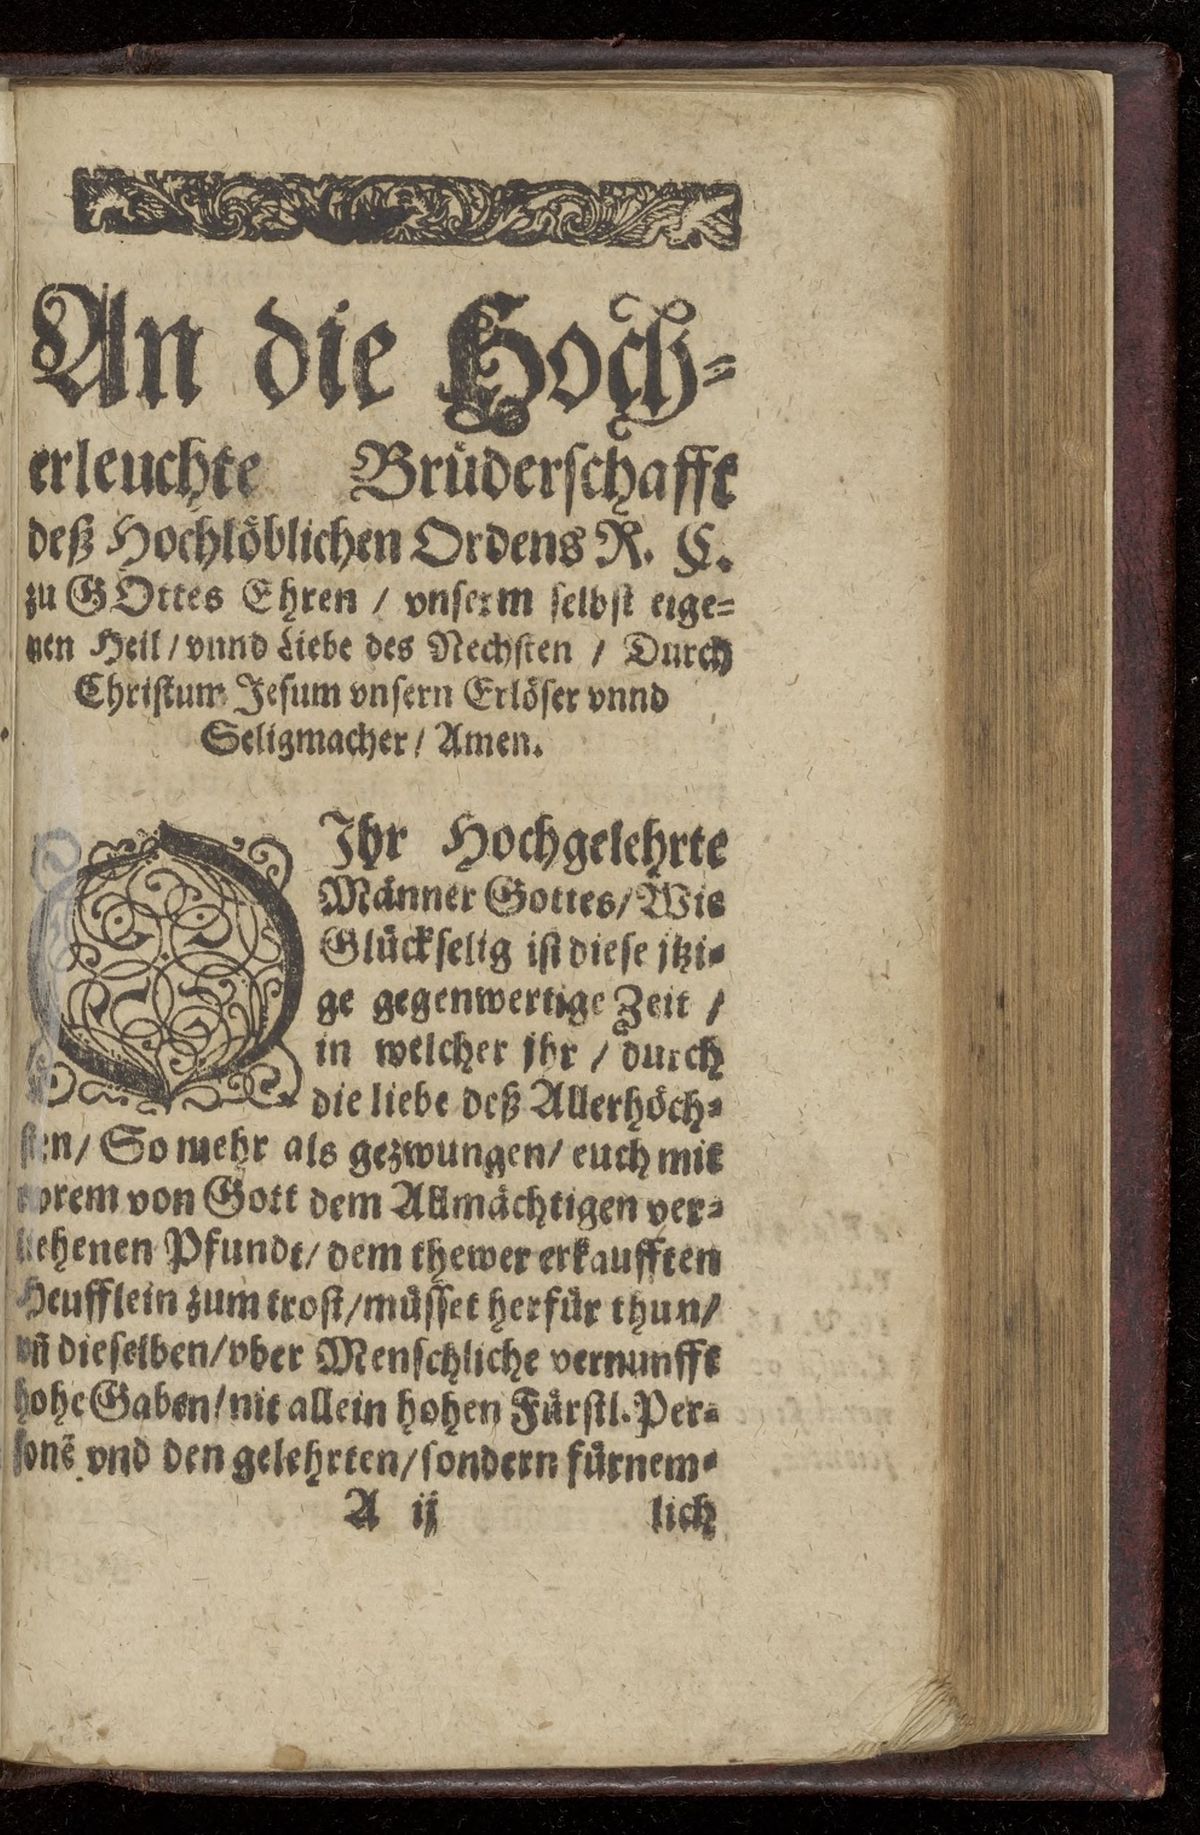 An die Hoch-
erleuchte Brüderschafft
deß Hochlöblichen Ordens R. C.
zu GOttes Ehren / vnserm selbst eige-
nen Heil / vnnd Liebe des Nechsten / Durch
Christum Jesum vnsern Erlöser vnnd
Seligmacher / Amen.
O Jhr Hochgelehrte
Männer Gottes / Wie
Glückselig ist diese jtzi-
ge gegenwertige Zeit /
in welcher jhr / durch
die liebe deß Allerhöch-
sten / So mehr als gezwungen / euch mit
ewrem von Gott dem Allmächtigen ver-
liehenen Pfundt / dem thewer erkaufften
Heufflein zum trost / müsset herfür thun /
vñ dieselben / vber Menschliche vernunfft
hohe Gaben / nit allein hohen Fürstl. Per-
sonẽ vnd den gelehrten / sondern fürnem-
A ij lich